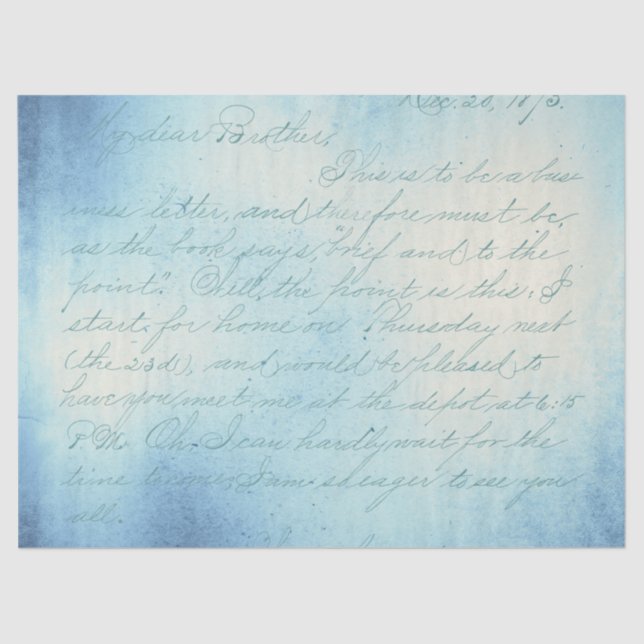 Dec. 20, 1875.
My dear Brother,
This is to be a bus-
iness letter, and therefore must be,
as the book says, "brief and to the
point". Well, the point is this: I
start for home on Thursday next
(the 23d), and would be pleased to
have you meet me at the depot at 6:15
P.M. Oh, I can hardly wait for the
time to come, I am so eager to see you
all.